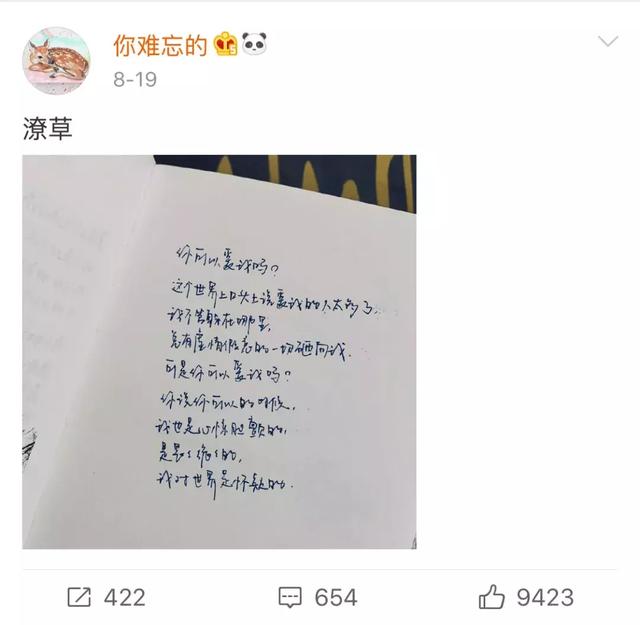 你难忘的
8-19
潦草
你可以爱我吗?
这个世界上口头上说爱我的人太多了,
我不管躲在哪里,
总有虚情假意的一切砸向我.
可是你可以爱我吗?
你说你可以的时候,
我也是心惊胆颤的,
是畏畏缩缩的,
我对世界是怀疑的.
422
654
9423